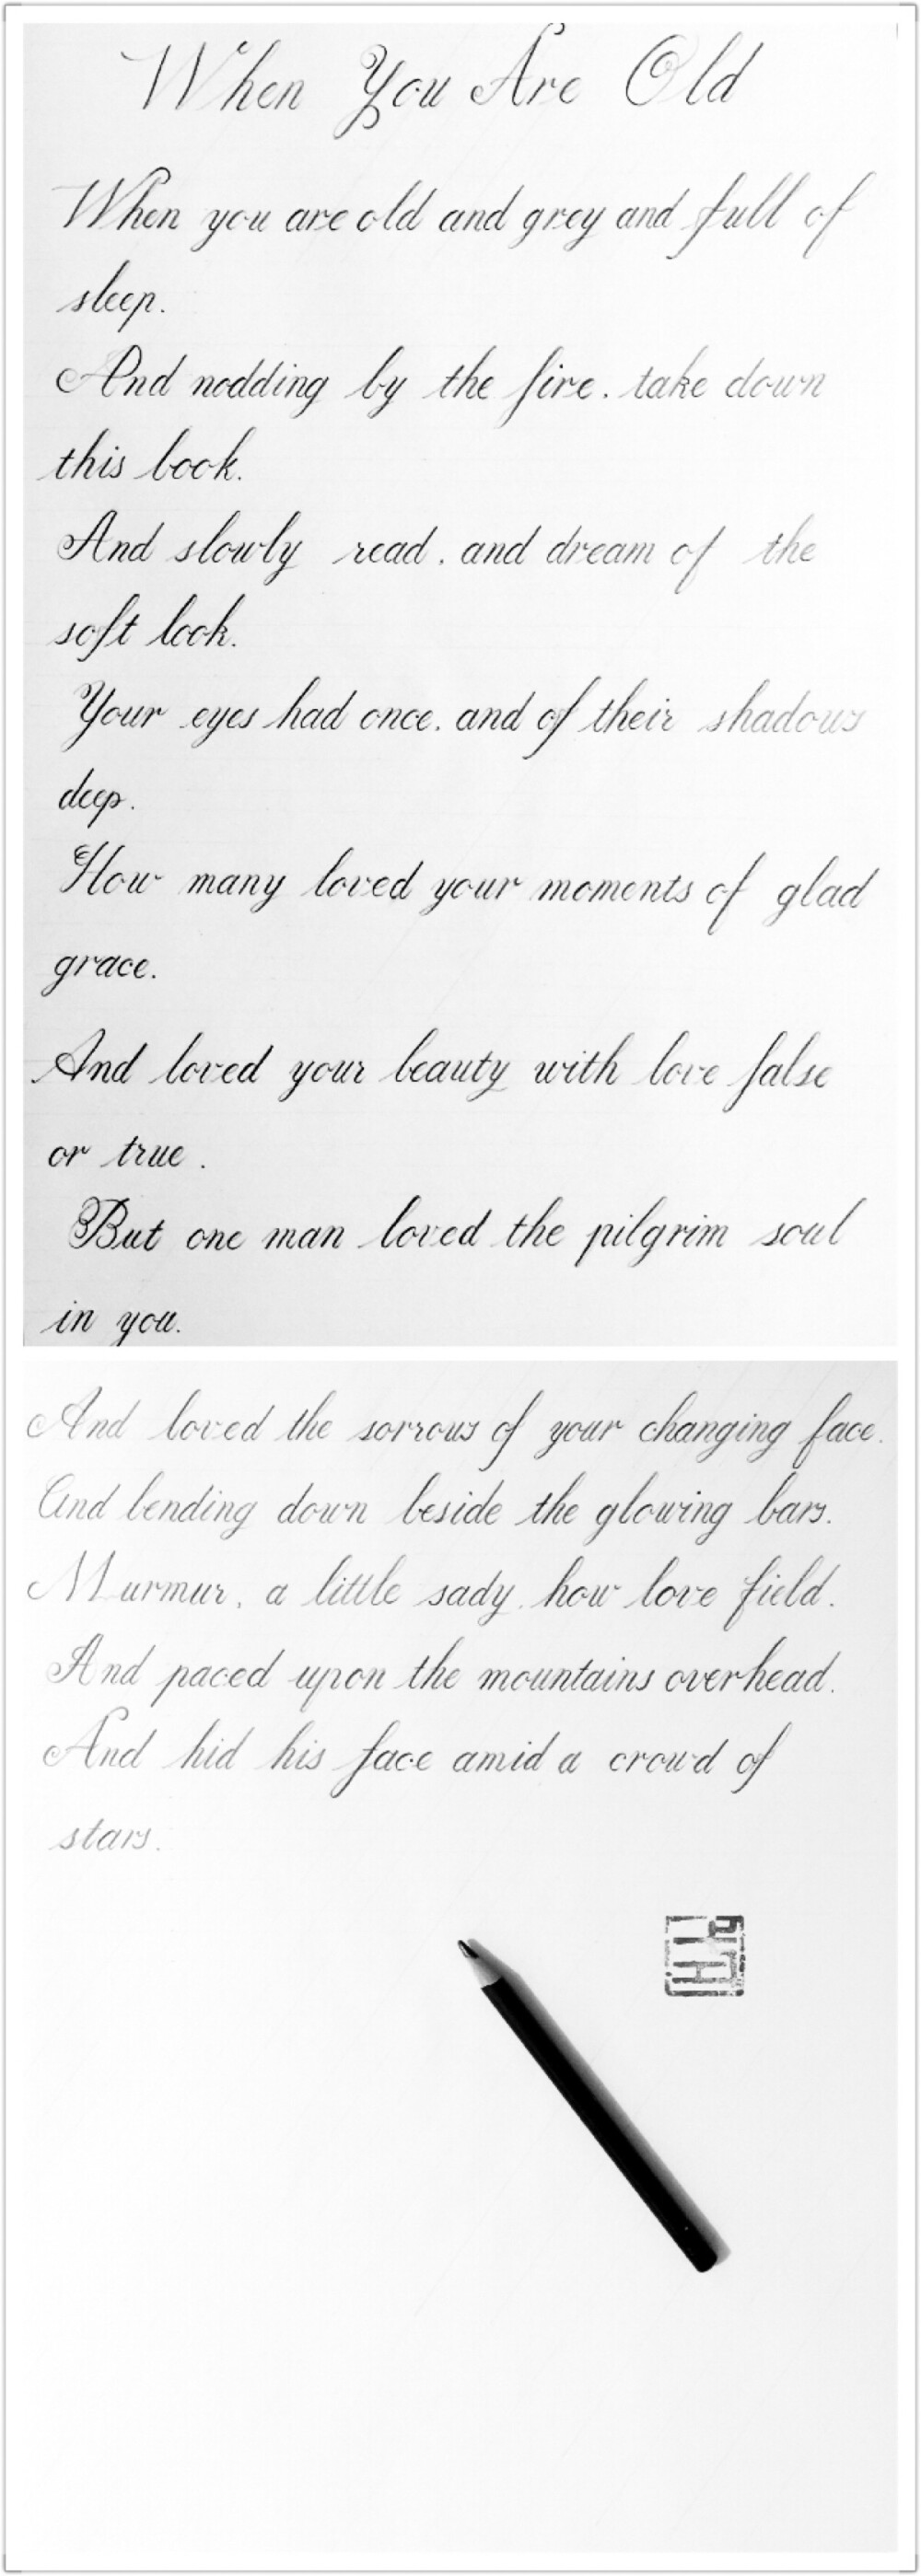 When You Are Old
When you are old and grey and full of
sleep.
And nodding by the fire. take down
this book.
And slowly read. and dream of the
soft look.
Your eyes had once. and of their shadows
deep.
How many loved your moments of glad
grace.
And loved your beauty with love false
or true.
But one man loved the pilgrim soul
in you.
And loved the sorrows of your changing face.
And bending down beside the glowing bars.
Murmur, a little sady. how love field.
And paced upon the mountains overhead.
And hid his face amid a crowd of
stars.